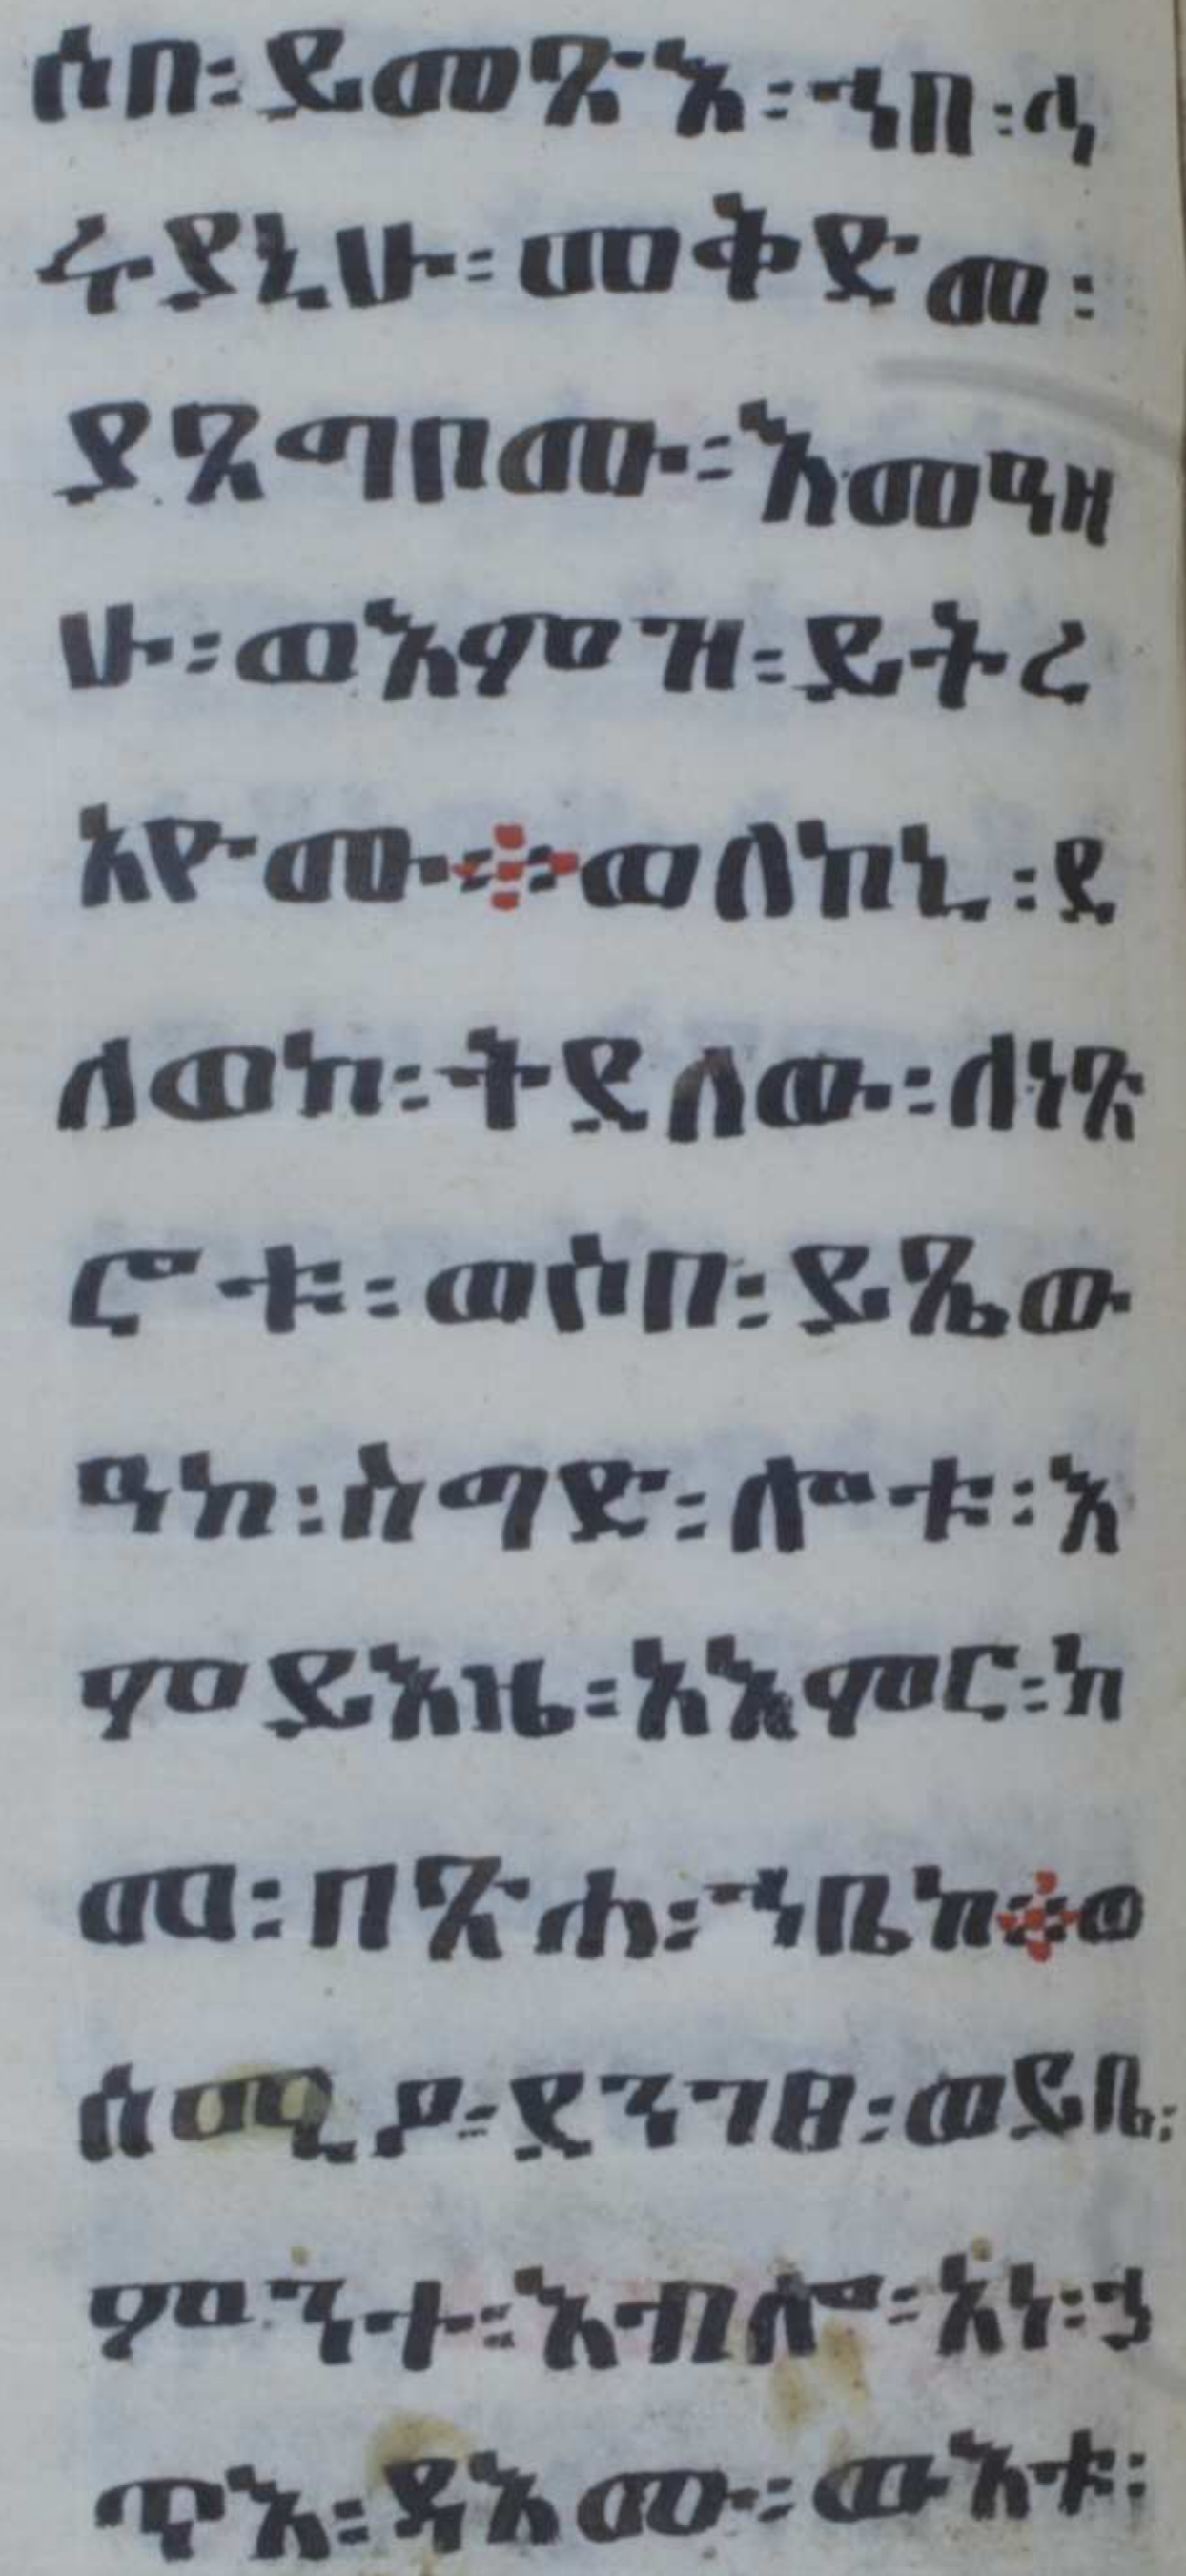 ሶበ፡ይመጽእ፡ኀበ፡ሓ
ራያኒሁ፡መቅድመ፡
ያጼግቦሙ፡እመዓዛ
ሁ፡ወእምዝ፡ይትረ
አዮሙ፨ወለከኒ፡ደ
ለወከ፡ትደለው፡ለነጽ
ሮቱ፡ወሶበ፡ይጼው
ዓከ፡ስግድ፡ሎቱ፡እ
ምይእዜ፡አእምር፡ከ
መ፡በጽሐ፡ኀቤከ፨ወ
ሰሚዖ፡ደንገፀ፡ወይቤ፡
ምንተ፡እብሎ፡አነ፡ኃ
ጥእ፡ዳእሙ፡ውእቱ፡